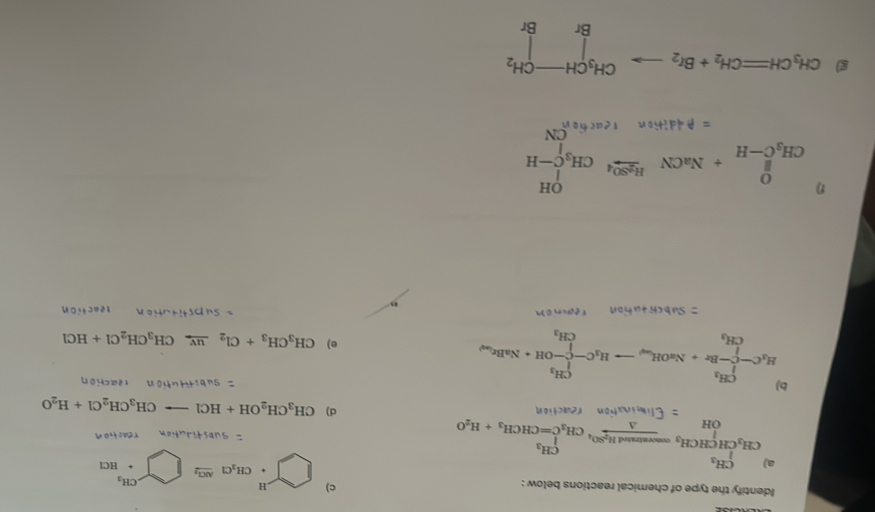 EXERCISE
Identify the type of chemical reactions below :
a)
CH3
CH3CHCHCH3
OH
concentrated H2SO4
Δ
CH3
CH3C=CHCH3 + H2O
= Elimination reaction
b)
CH3
H3C—C—Br + NaOH(aq) → H3C—C—OH + NaBr(aq)
CH3
CH3
CH3
= Substitution reaction
c)
H
+ CH3Cl
AlCl3
CH3
+ HCl
= substitution reaction
d) CH3CH2OH + HCl → CH3CH2Cl + H2O
= substitution reaction
e) CH3CH3 + Cl2 uv → CH3CH2Cl + HCl
= substitution reaction
f)
O
CH3C—H + NaCN H2SO4 →
OH
CH3C—H
CN
= Addition reaction
g) CH3CH=CH2 + Br2 → CH3CH—CH2
Br Br